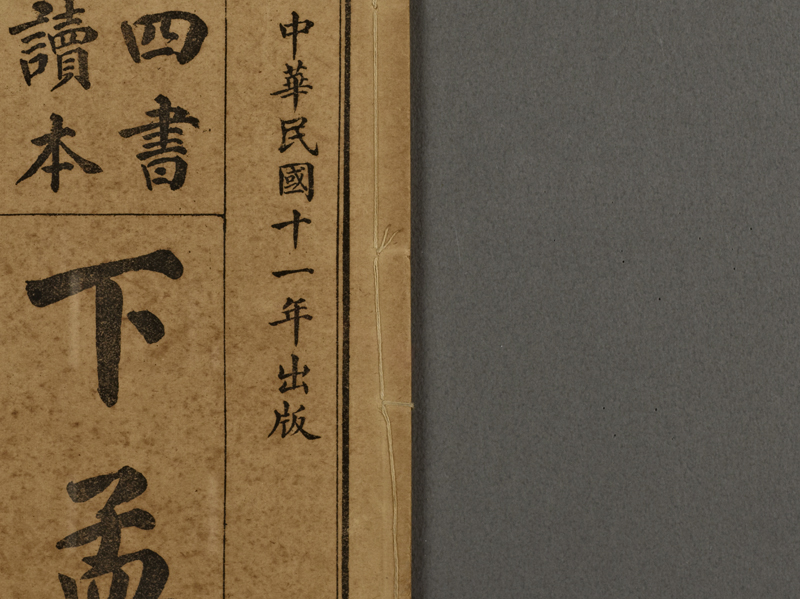 中華民國十一年出版
四書
讀本
下孟